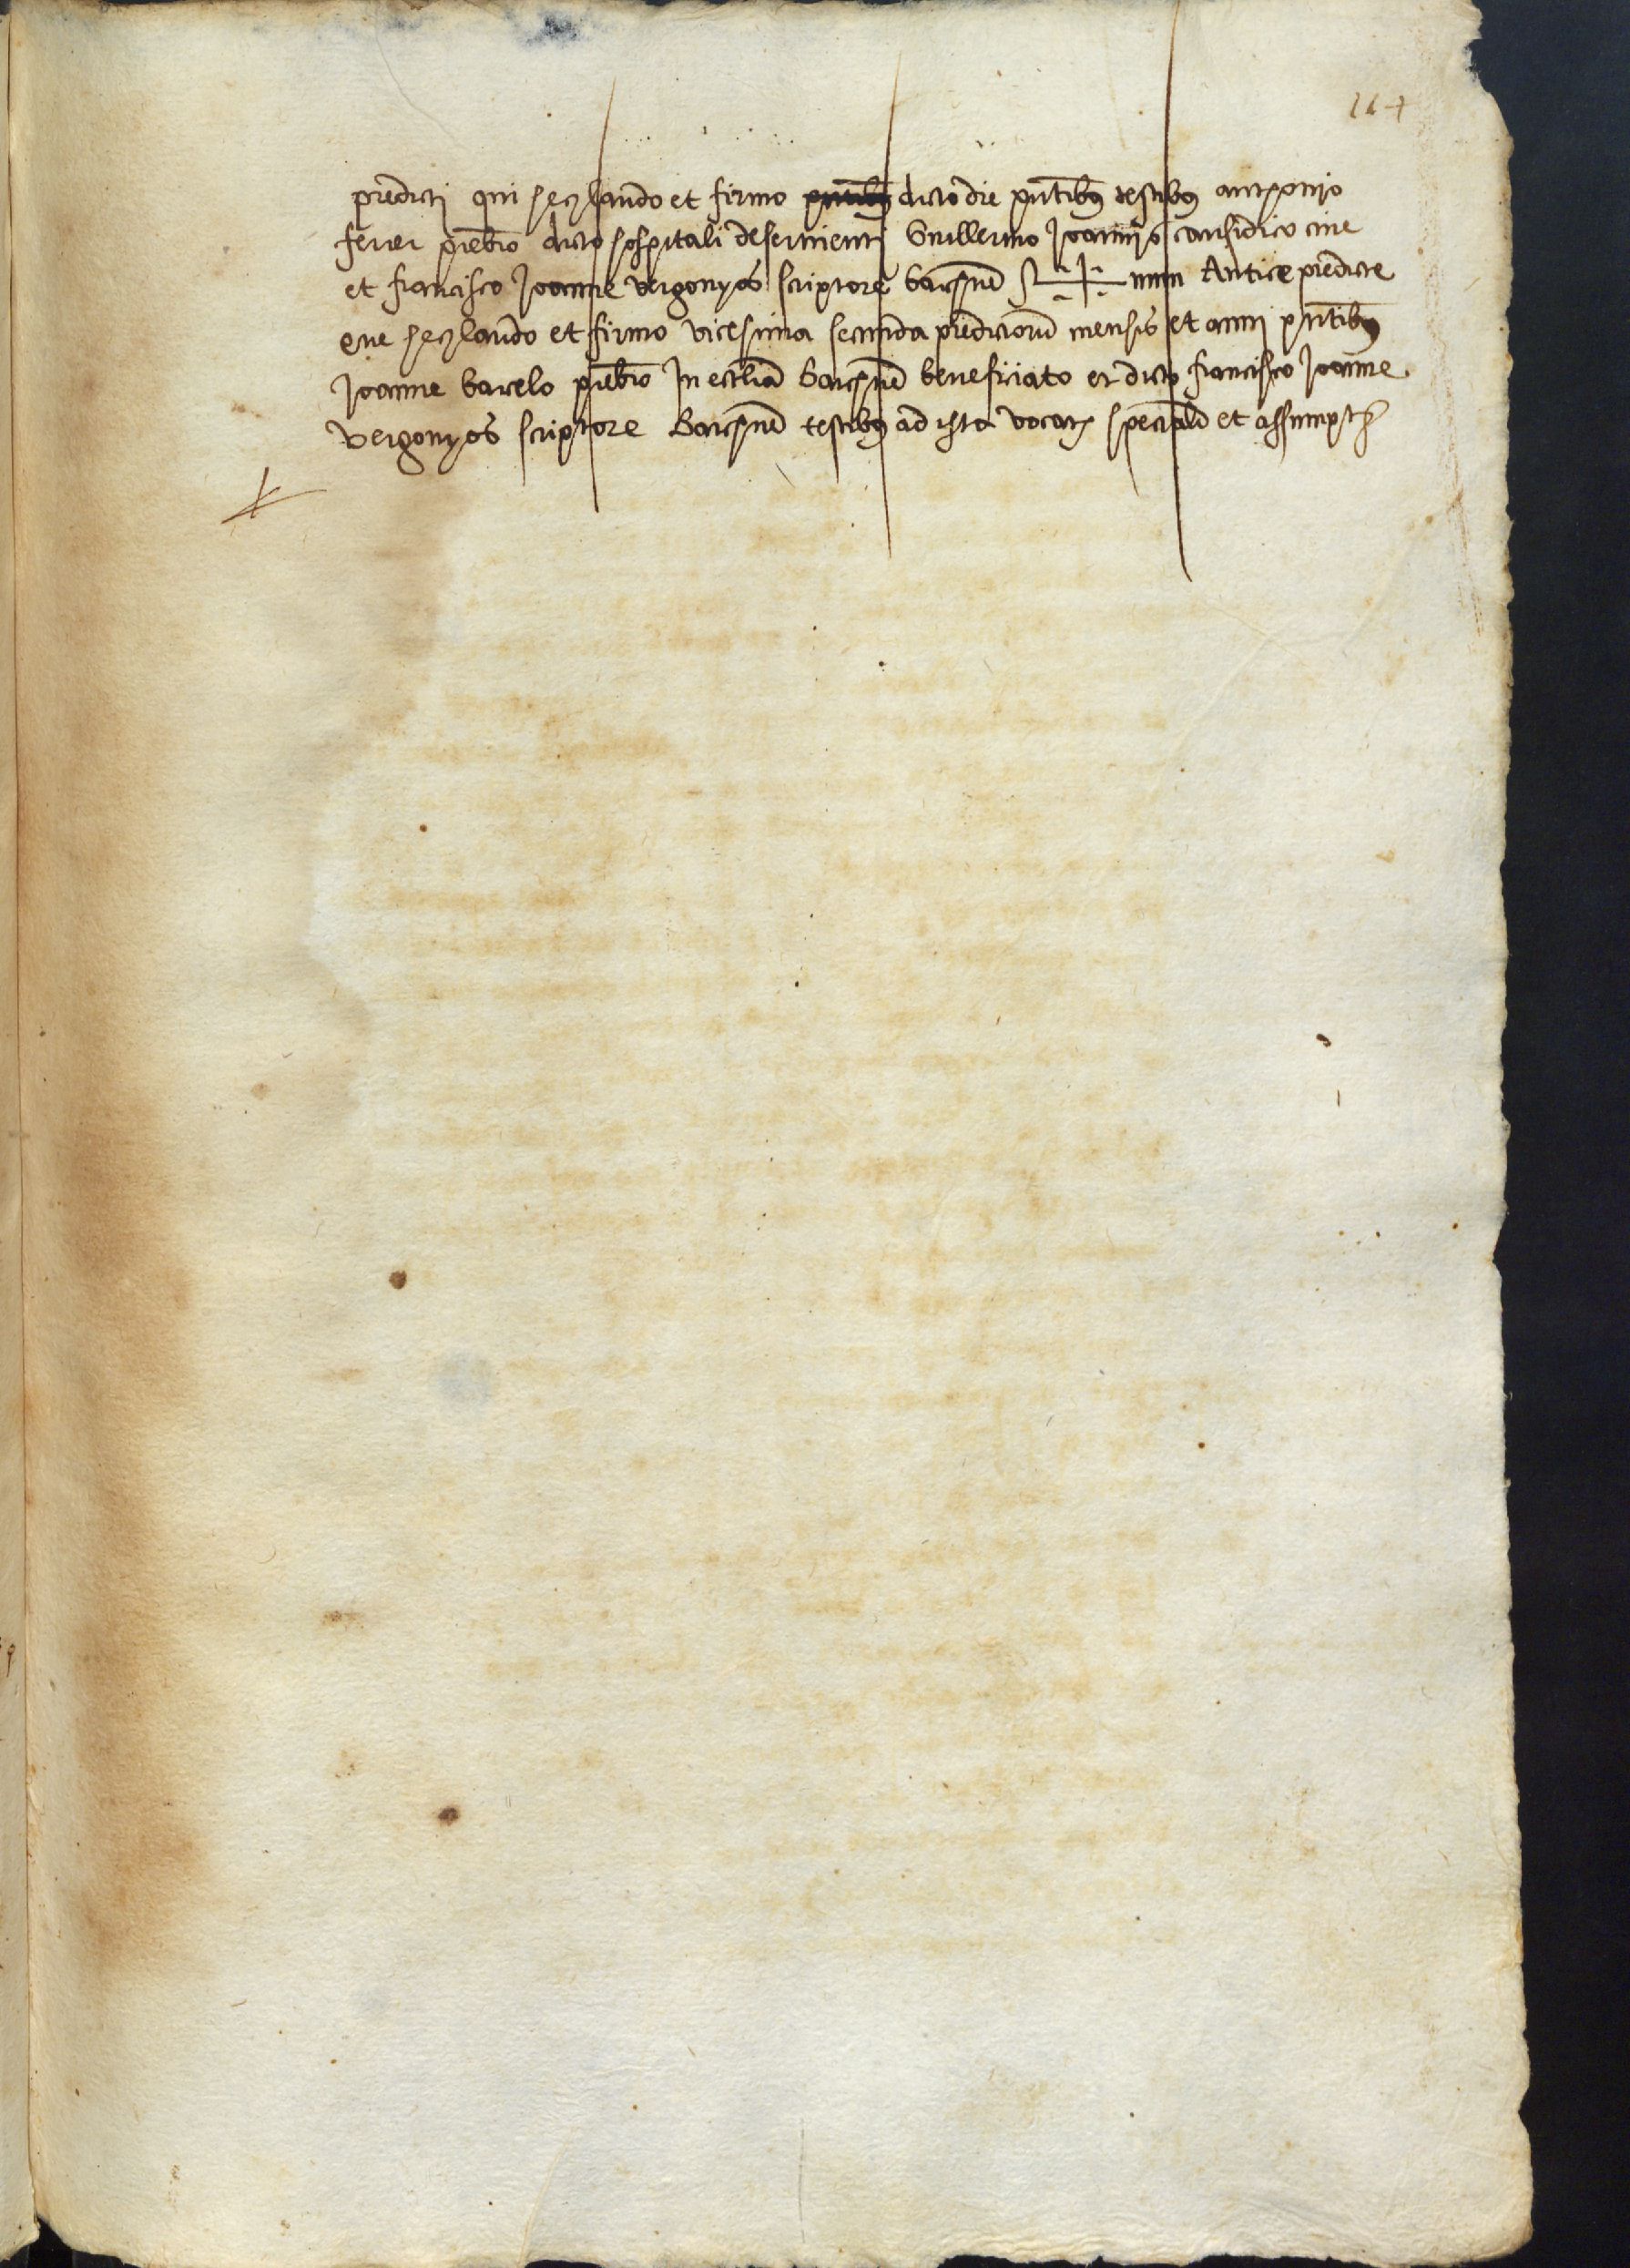 predicti qui hec laudo et firmo dicto die pntibus testibus anthonio
ferrer prebro dicto hospitali deservienti Guillermo Joannis causidico cive
et francisco Joanne vergonyos scriptore barchne S+num Antice predicte
que hec laudo et firmo vicesima secunda predictorum mensis et anni pntibus
Joanne barcelo prebro In ecclia barchne beneficiato et dicto francisco Joanne
vergonyos scriptore barchne testibus ad ista vocatis specialr et assumptis